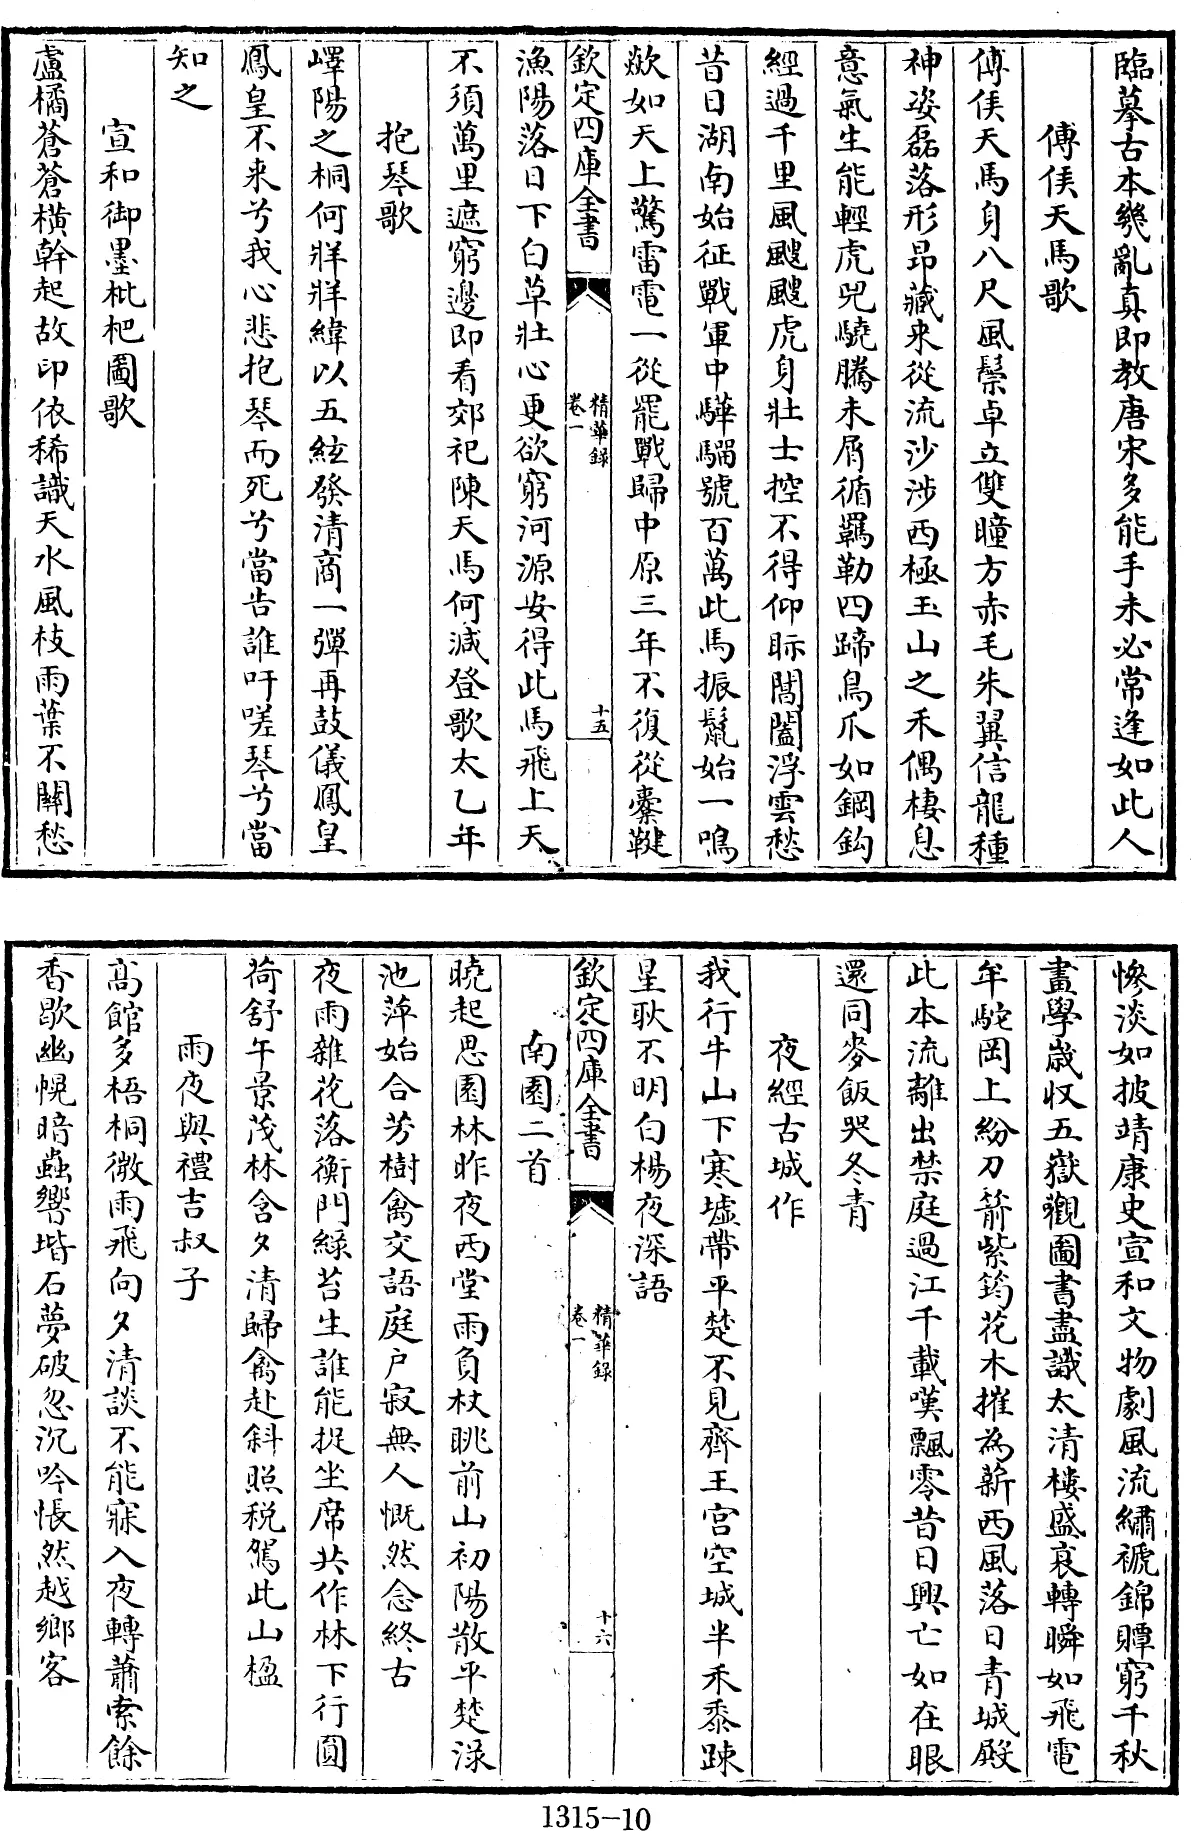 臨摹古本幾亂真即教唐宋多能手未必常逢如此人
傅侯天馬歌
傅侯天馬身八尺風鬃卓立雙瞳方赤毛朱翼信龍種
神姿磊落形昂藏來從流沙涉西極玉山之禾偶棲息
意氣生能輕虎兕驍騰未屑循羈勒四蹄鳥爪如鋼鈎
經過千里風颼颼虎身壯士控不得仰眎閶闔浮雲愁
昔日湖南始征戰軍中驊騮號百萬此馬振鬣始一鳴
歘如天上驚雷電一從罷戰歸中原三年不復從櫜鞬
欽定四庫全書
精華録
卷一
十五
漁陽落日下白草壯心更欲窮河源安得此馬飛上天
不須萬里遮窮邊即看郊祀陳天馬何減登歌太乙年
抱琴歌
嶧陽之桐何牂牂緯以五絃發清商一彈再鼓儀鳳皇
鳳皇不來兮我心悲抱琴而死兮當告誰吁嗟琴兮當
知之
宣和御墨枇杷圖歌
盧橘蒼蒼橫幹起故印依稀識天水風枝雨葉不關愁
慘淡如披靖康史宣和文物劇風流繡褫錦贉窮千秋
畫學歲収五嶽觀圖書盡識太清樓盛衰轉瞬如飛電
年駝岡上紛刀箭紫筠花木摧為薪西風落日青城殿
此本流離出禁庭過江千載嘆飄零昔日興亡如在眼
還同麥飯哭冬青
夜經古城作
我行牛山下寒墟帶平楚不見齊王宮空城半禾黍踈
星耿不明白楊夜深語
欽定四庫全書
精華録
卷一
十六
南園二首
曉起思園林昨夜西堂雨負杖眺前山初陽散平楚渌
池萍始合芳樹禽交語庭户寂無人慨然念終古
夜雨雜花落衡門緑苔生誰能捉坐席共作林下行圓
荷舒午景茂林含夕清歸禽赴斜照税駕此山楹
雨夜與禮吉叔子
高館多梧桐微雨飛向夕清談不能寐入夜轉蕭索餘
香歇幽幌暗蟲響堦石夢破忽沉吟悵然越鄉客
1315-10